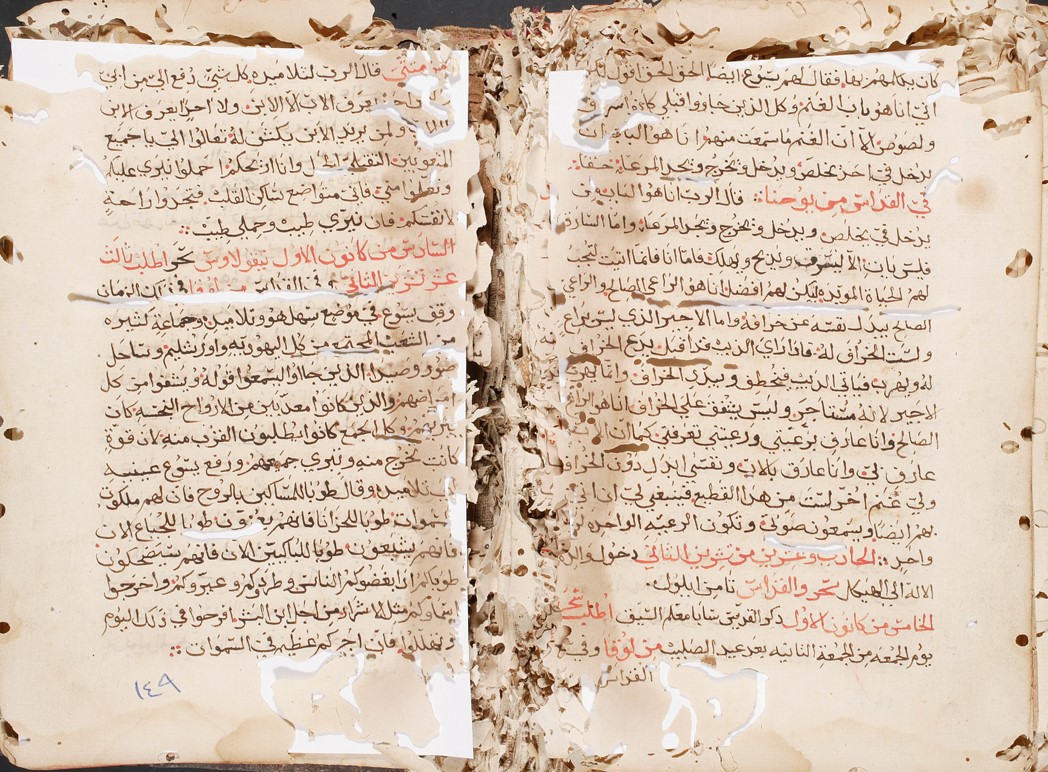 كان يكلمهم به فقال لهم يسوع ايضا الحق الحق اقول
اني انا هو باب الغنم وكل الذين جاووا قبلي كانوا سراق
ولصوص الا ان الغنم ما سمعت منهم انا هو الباب ان
يدخل في احد يخلص ويدخل ويخرج ويجد المرعا
في القداس من يوحنا قال الرب انا هو الباب من
يدخل في يخلص ويدخل ويخرج ويجد المرعا واما السارق
فليس ياتي الا ليسرق ويذبح ويهلك فاما انا فانما اتيت لتجب
لهم الحياة الموبده ليكن لهم افضل انا هو الراعي الصالح والراعي
الصالح يبذل نفسه عن خرافه واما الاجير الذي ليس براع
وليست الخراف له فاذا راي الديب قد اقبل يدع الخراف
له ويهرب فياتي الديب فيخطف ويبدد الخراف وانما يهرب
الاجير لانه مستاجر وليس يشفق علي الخراف انا هو الراع
الصالح وانا عارف برعيتي ورعيتي تعرفني كما ان الاب
عارف لي وانا عارف بالاب ونفسي ابذل دون الخراف
ولي غنم اخر ليست من هذا القطيع فينبغي لي ان اتي
بهم ايضا ويسمعون صوتي وتكون الرعيه الواحده
واحد الحادي وعشرين من تشرين الثاني دخول والدة
الاله الي الهيكل سحر والقداس ثامن ايلول
الخامس من كانون الاول ذكر القديس سابا معلم السيق اطلب سحر
يوم الجمعه من الجمعة الثانيه بعد عيد الصليب من لوقا وفي
القداس
من متي قال الرب لتلاميذه كل شي دفع الي من ابي
وليس احد يعرف الاب الا الابن ولا احد يعرف الابن
الا الاب ولمن يريد الابن يكشف له تعالوا الي يا جميع
المتعوبين الثقيلة الحمل وانا اريحكم احملوا نيري عليكم
وتعلموا مني فاني متواضع ساكن القلب فتجدوا راحة
لانفسكم فان نيري طيب وحملي طيب
السادس من كانون الاول نيقولاوس سحر اطلب ثالث
عشر تشرين الثاني وفي القداس من لوقا في ذلك الزمان
وقف يسوع في موضع سهل هو وتلاميذه وجماعة كثيره
من الشعب المجتمع من كل اليهوديه واورشليم وساحل
صور وصيدا الذين جاوا ليسمعوا قوله ويشفوا من كل
امراضهم والذين كانوا معذبين من الارواح النجسه كان
يبريهم وكل الجمع كانوا يطلبون القرب منه لان قوة
كانت تخرج منه وتبري جميعهم ورفع يسوع عينيه
الي تلاميذه وقال طوبا للمساكين بالروح فان لهم ملكوت
السموات طوبا للحزانا فانهم يعزون طوبا للجياع الان
فانهم يشبعون طوبا للباكيين الان فانهم سيضحكون
طوباكم اذا بغضوكم الناس وطردوكم وعيروكم واخرجوا
اسماوكم مثل الاشرار من اجل ابن البشر افرحوا في ذلك اليوم
وتهللوا فان اجركم عظيم في السموات
١٤٩